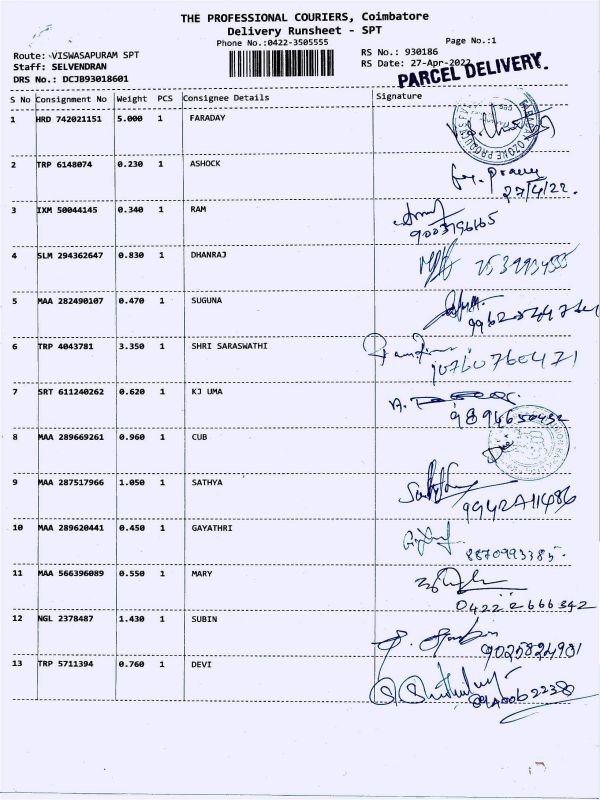 THE PROFESSIONAL COURIERS, Coimbatore
Delivery Runsheet - SPT
Phone No.:0422-3505555
Page No.:1
Route: VISWASAPURAM SPT
RS No.: 930186
Staff: SELVENDRAN
RS Date: 27-Apr-2022
DRS No.: DCJB93018601
PARCEL DELIVERY.
S No Consignment No Weight PCS Consignee Details Signature
1 HRD 742021151 5.000 1 FARADAY
2 TRP 6148074 0.230 1 ASHOCK
27/4/22.
3 IXM 50044145 0.340 1 RAM
9003796165
4 SLM 294362647 0.830 1 DHANRAJ
5 MAA 282490107 0.470 1 SUGUNA
6 TRP 4043781 3.350 1 SHRI SARASWATHI
7 SRT 611240262 0.620 1 KJ UMA
9894650452
8 MAA 289669261 0.960 1 CUB
9 MAA 287517966 1.050 1 SATHYA
10 MAA 289620441 0.450 1 GAYATHRI
8870993385.
11 MAA 566396089 0.550 1 MARY
0422 2666342
12 NGL 2378487 1.430 1 SUBIN
9025824981
13 TRP 5711394 0.760 1 DEVI